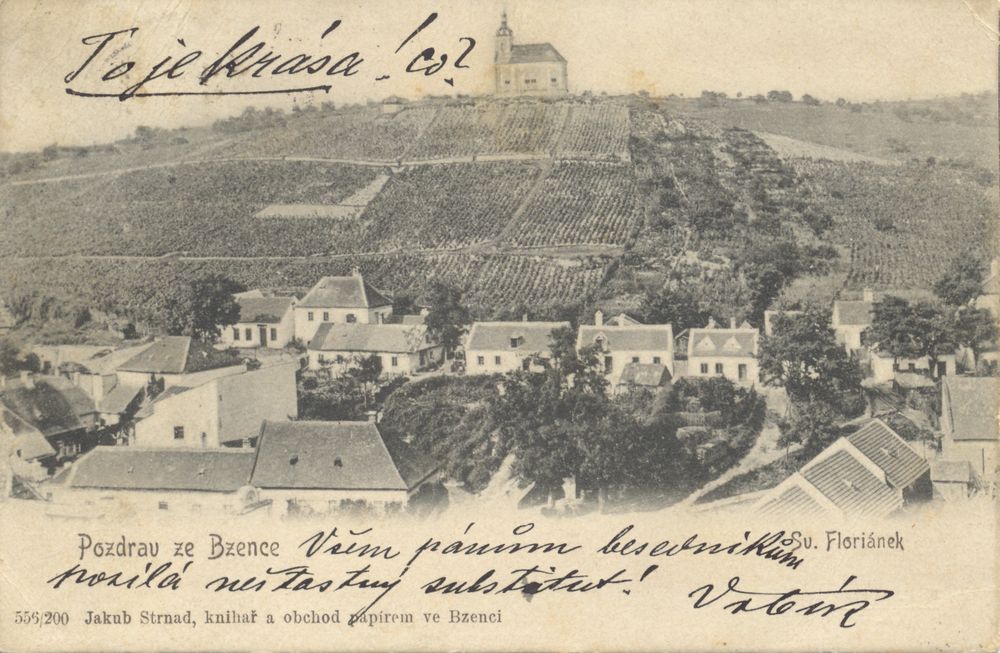 To je krása! co?
Pozdrav ze Bzence Všem pánům besedníkům Sv. Floriánek
posílá nešťastný substitut!
556/200 Jakub Strnad, knihař a obchod papírem ve Bzenci